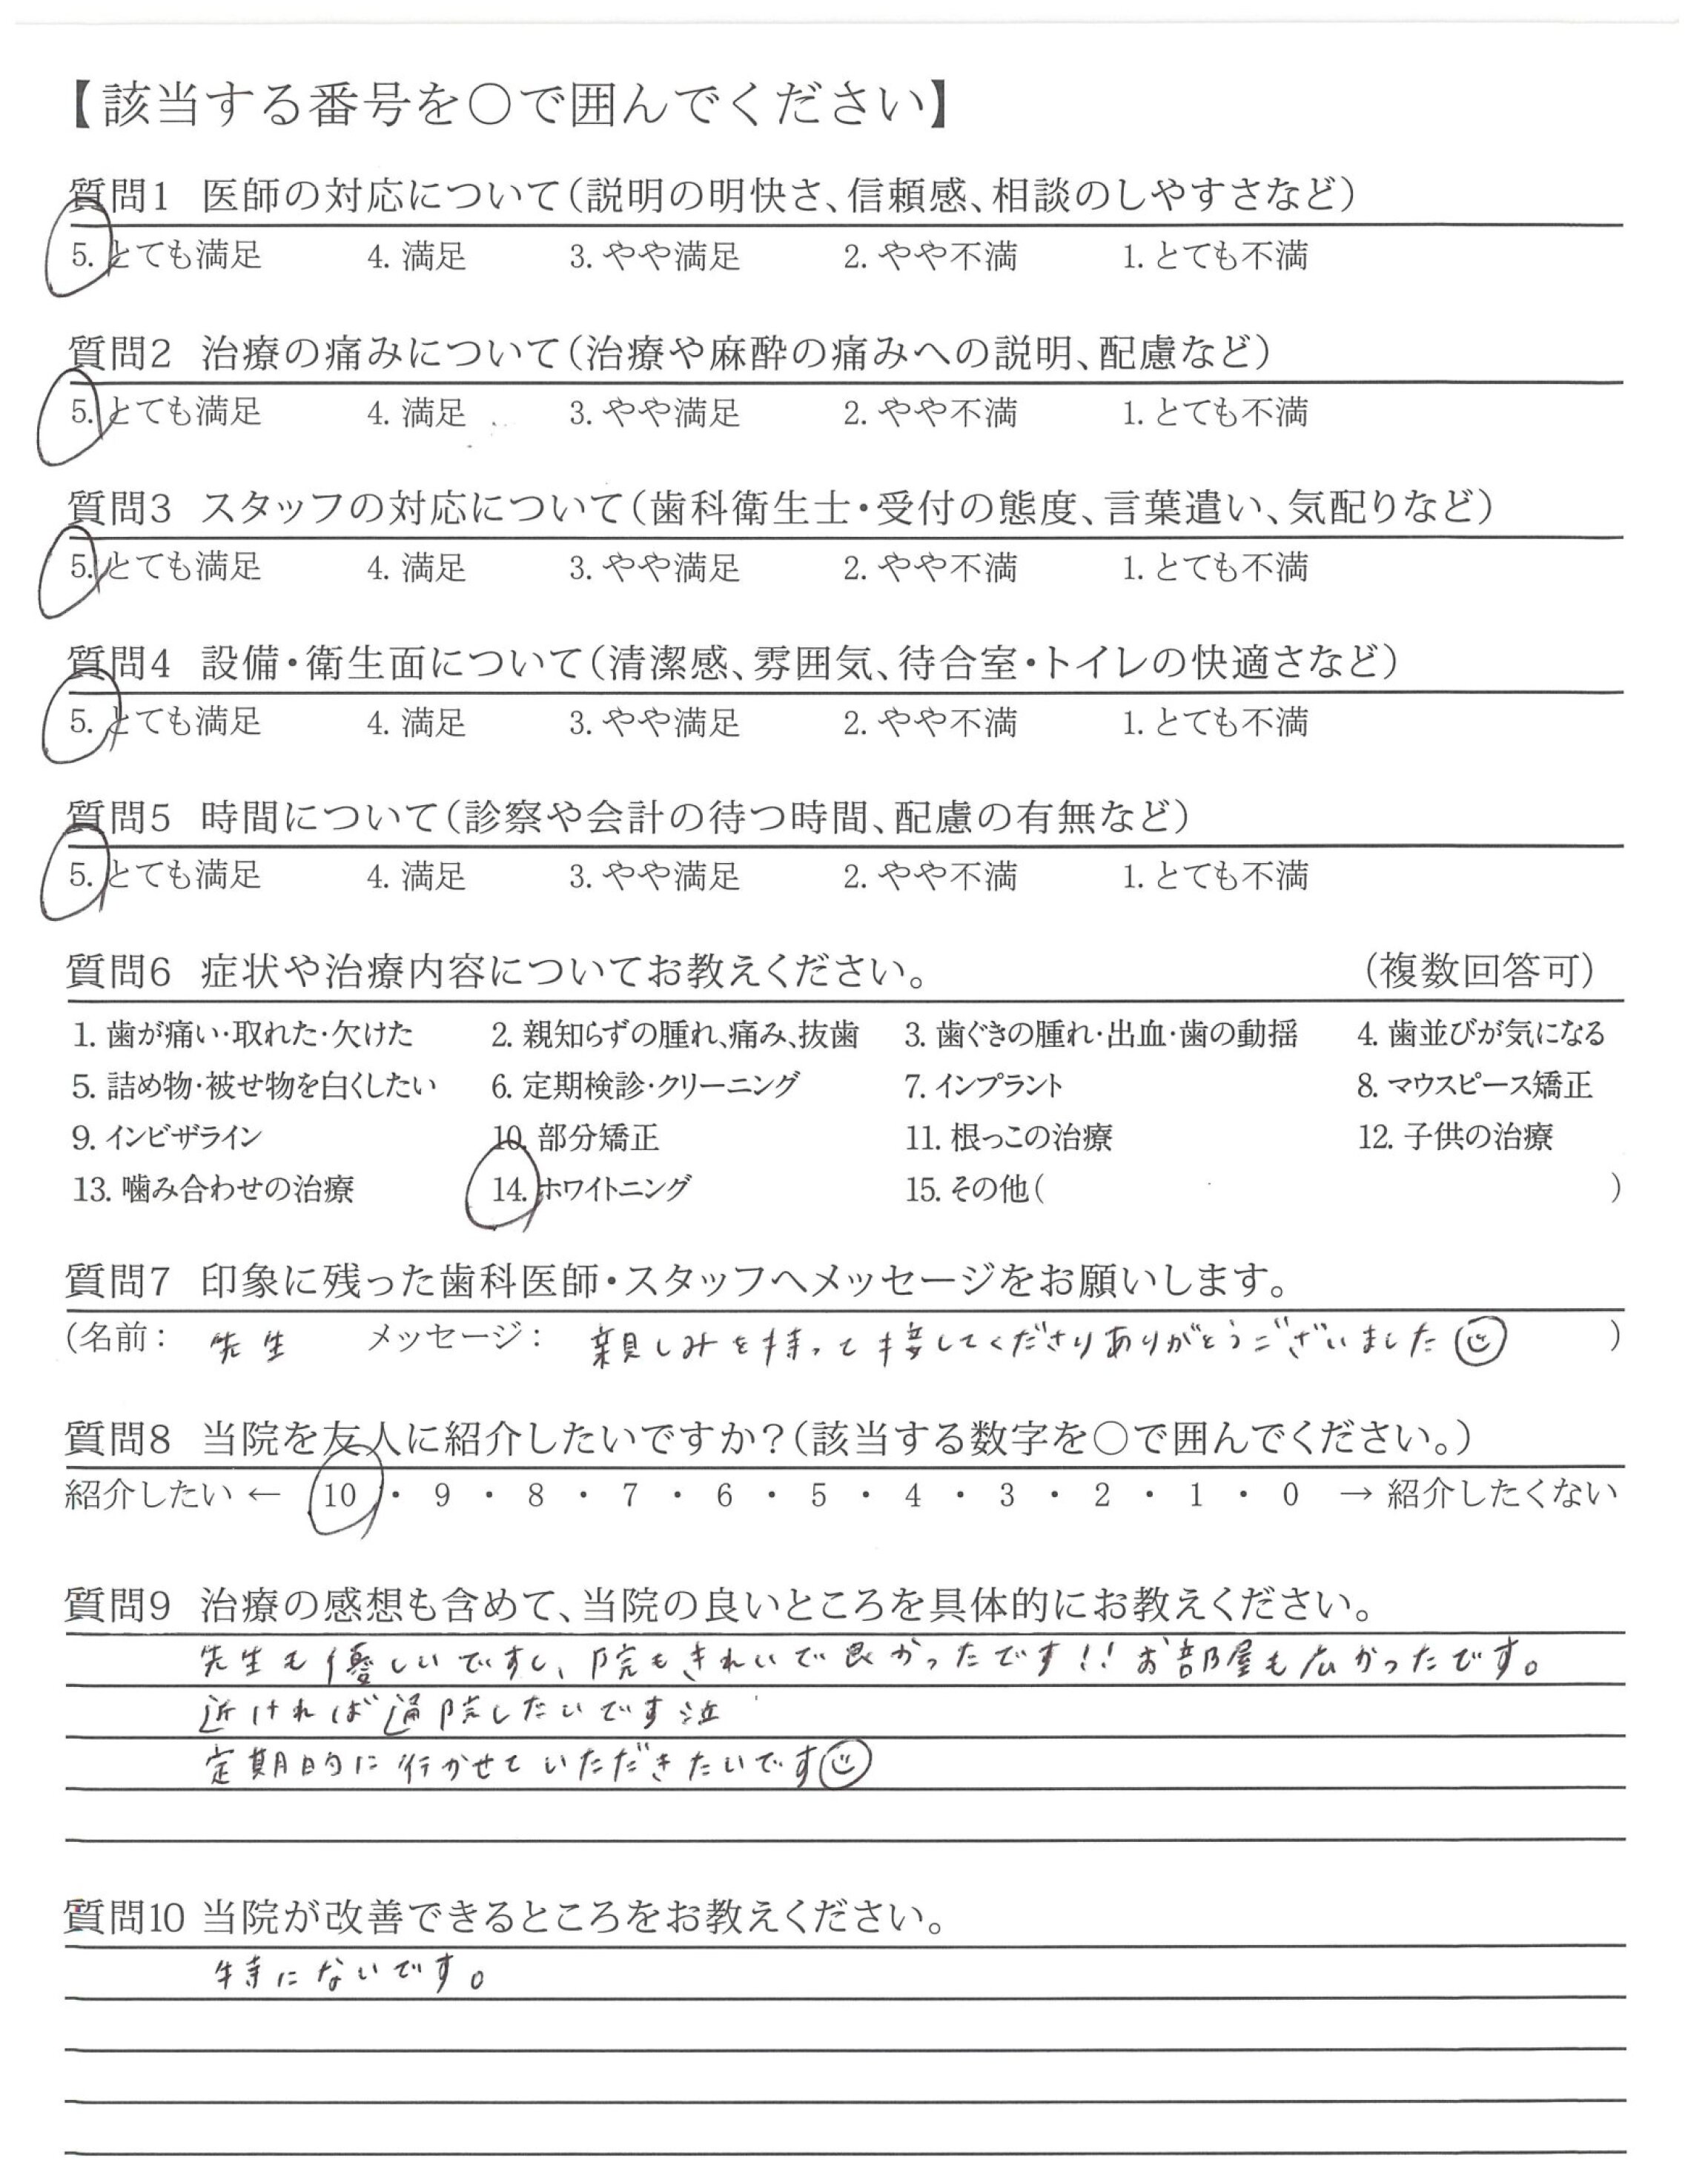 【該当する番号を〇で囲んでください】
質問1 医師の対応について（説明の明快さ、信頼感、相談のしやすさなど）
5. とても満足 4. 満足 3. やや満足 2. やや不満 1. とても不満
質問2 治療の痛みについて（治療や麻酔の痛みへの説明、配慮など）
5. とても満足 4. 満足 3. やや満足 2. やや不満 1. とても不満
質問3 スタッフの対応について（歯科衛生士・受付の態度、言葉遣い、気配りなど）
5. とても満足 4. 満足 3. やや満足 2. やや不満 1. とても不満
質問4 設備・衛生面について（清潔感、雰囲気、待合室・トイレの快適さなど）
5. とても満足 4. 満足 3. やや満足 2. やや不満 1. とても不満
質問5 時間について（診察や会計の待つ時間、配慮の有無など）
5. とても満足 4. 満足 3. やや満足 2. やや不満 1. とても不満
質問6 症状や治療内容についてお教えください。 （複数回答可）
1. 歯が痛い・取れた・欠けた 2. 親知らずの腫れ、痛み、抜歯 3. 歯ぐきの腫れ・出血・歯の動揺 4. 歯並びが気になる
5. 詰め物・被せ物を白くしたい 6. 定期検診・クリーニング 7. インプラント 8. マウスピース矯正
9. インビザライン 10. 部分矯正 11. 根っこの治療 12. 子供の治療
13. 噛み合わせの治療 14. ホワイトニング 15. その他（ ）
質問7 印象に残った歯科医師・スタッフへメッセージをお願いします。
（名前： 先生 メッセージ： 親しみを持って接してくださりありがとうございました☺ ）
質問8 当院を友人に紹介したいですか？（該当する数字を〇で囲んでください。）
紹介したい ← 10 ・ 9 ・ 8 ・ 7 ・ 6 ・ 5 ・ 4 ・ 3 ・ 2 ・ 1 ・ 0 → 紹介したくない
質問9 治療の感想も含めて、当院の良いところを具体的にお教えください。
先生も優しいですし、院もきれいで良かったです!! お部屋も広かったです。
近ければ通院したいです泣
定期的に行かせていただきたいです☺
質問10 当院が改善できるところをお教えください。
特にないです。